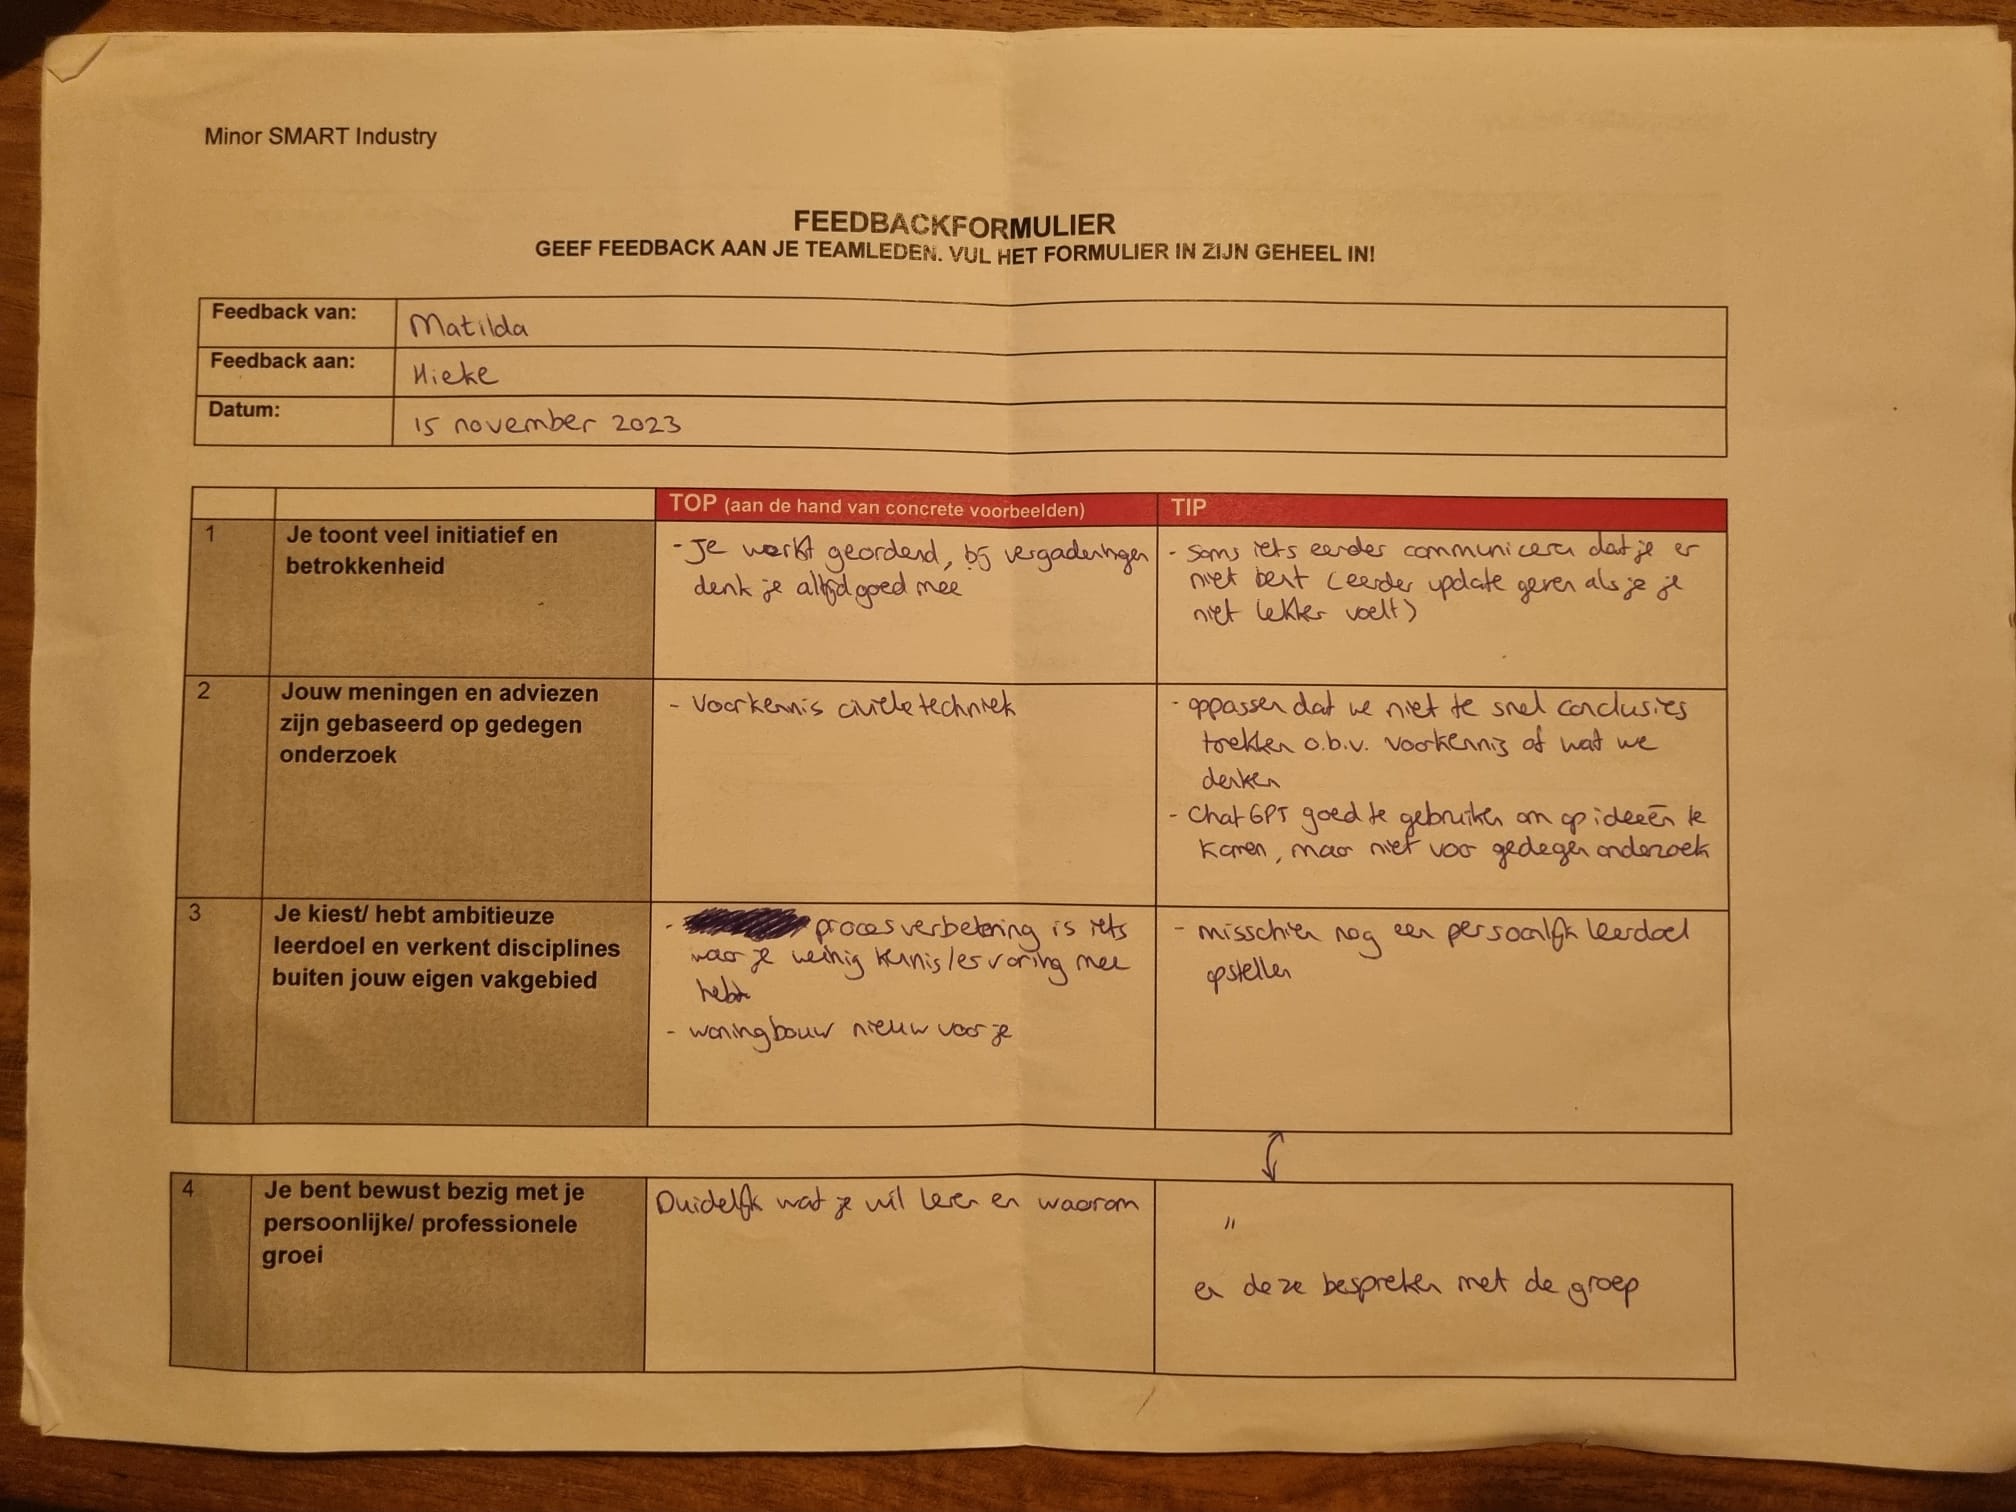 Minor SMART Industry
FEEDBACKFORMULIER
GEEF FEEDBACK AAN JE TEAMLEDEN. VUL HET FORMULIER IN ZIJN GEHEEL IN!
Feedback van: Matilda
Feedback aan: Hieke
Datum: 15 november 2023
TOP (aan de hand van concrete voorbeelden) TIP
1 Je toont veel initiatief en
betrokkenheid
- Je werkt geordend, bij vergaderingen
denk je altijd goed mee
- Soms iets eerder communiceren dat je er
niet bent (eerder update geven als je je
niet lekker voelt)
2 Jouw meningen en adviezen
zijn gebaseerd op gedegen
onderzoek
- Voorkennis civiele techniek
- oppassen dat we niet te snel conclusies
trekken o.b.v. voorkennis of wat we
denken
- ChatGPT goed te gebruiken om op ideeën te
komen, maar niet voor gedegen onderzoek
3 Je kiest/ hebt ambitieuze
leerdoel en verkent disciplines
buiten jouw eigen vakgebied
- procesverbetering is iets
waar je weinig kennis/ervaring mee
hebt
- woningbouw nieuw voor je
- misschien nog een persoonlijk leerdoel
opstellen
4 Je bent bewust bezig met je
persoonlijke/ professionele
groei
Duidelijk wat je wil leren en waarom
"
en deze bespreken met de groep